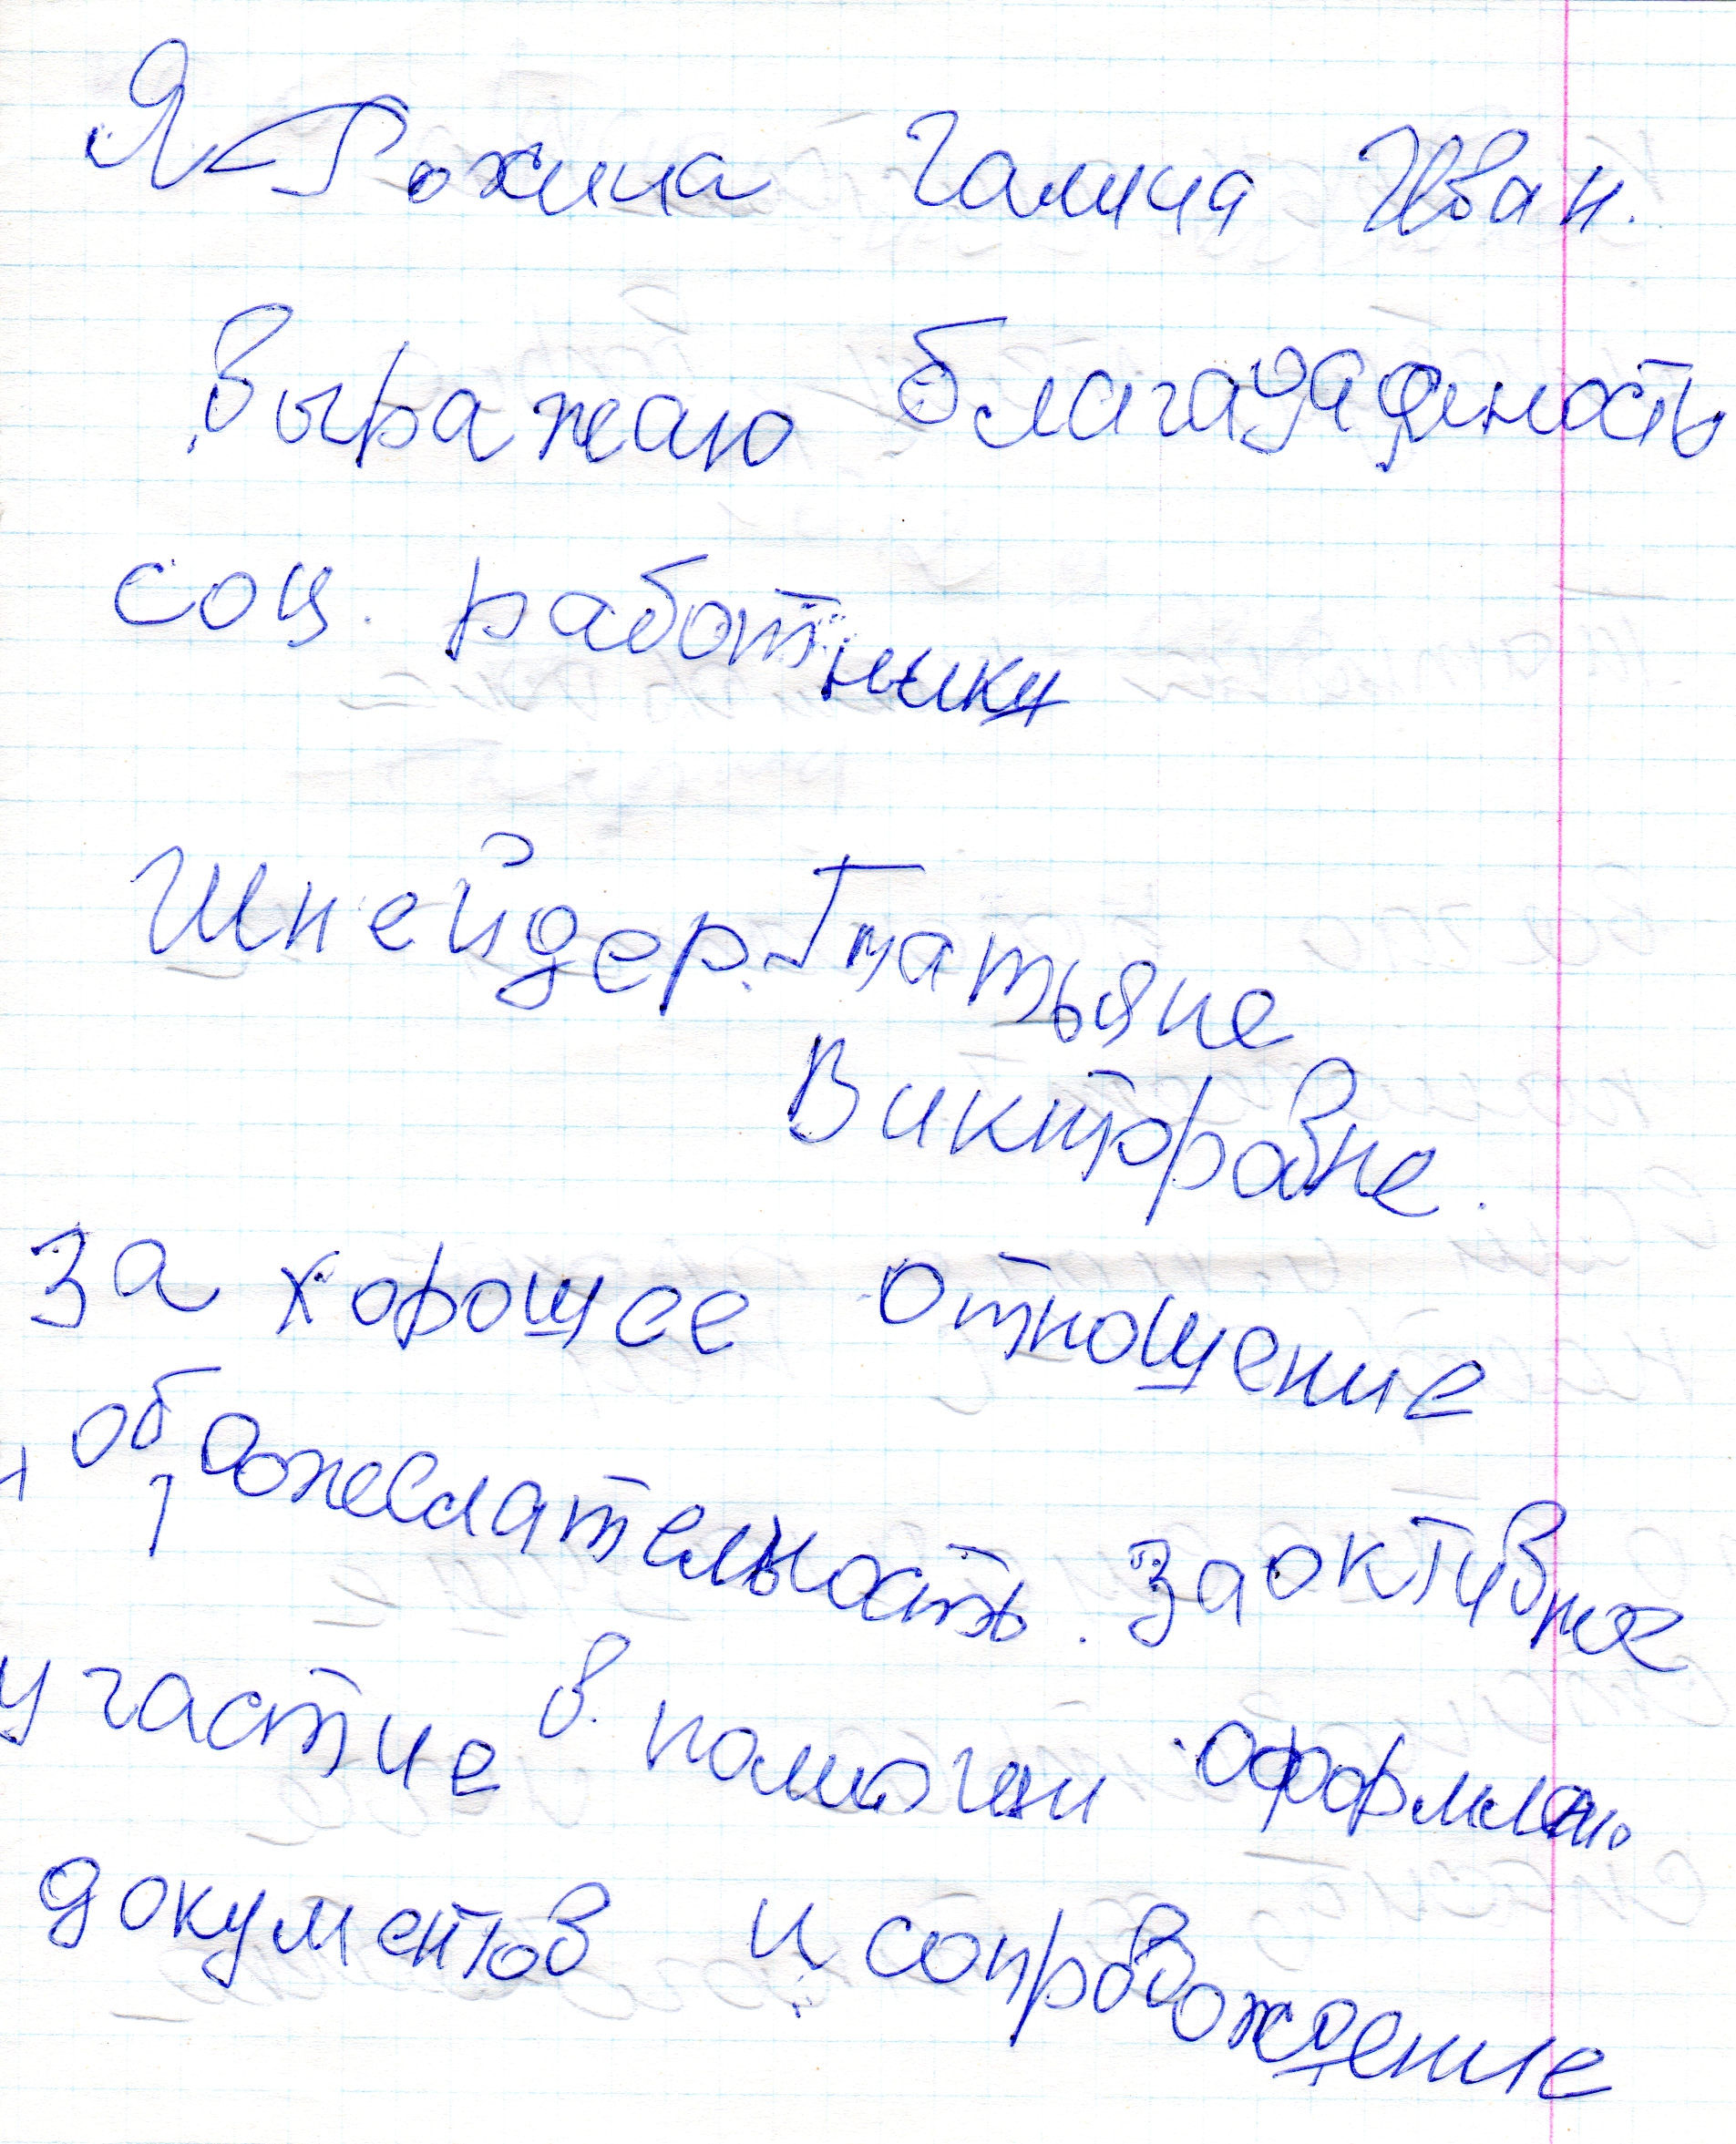 Я Рохина Галина Иван.
выражаю благадарность
соц. работнику
Шнейдер. Татьяне
Викторовне.
за хорошее отношение
и доброжелательность. за активное
участие в помощи оформлен.
документов и сопровождение